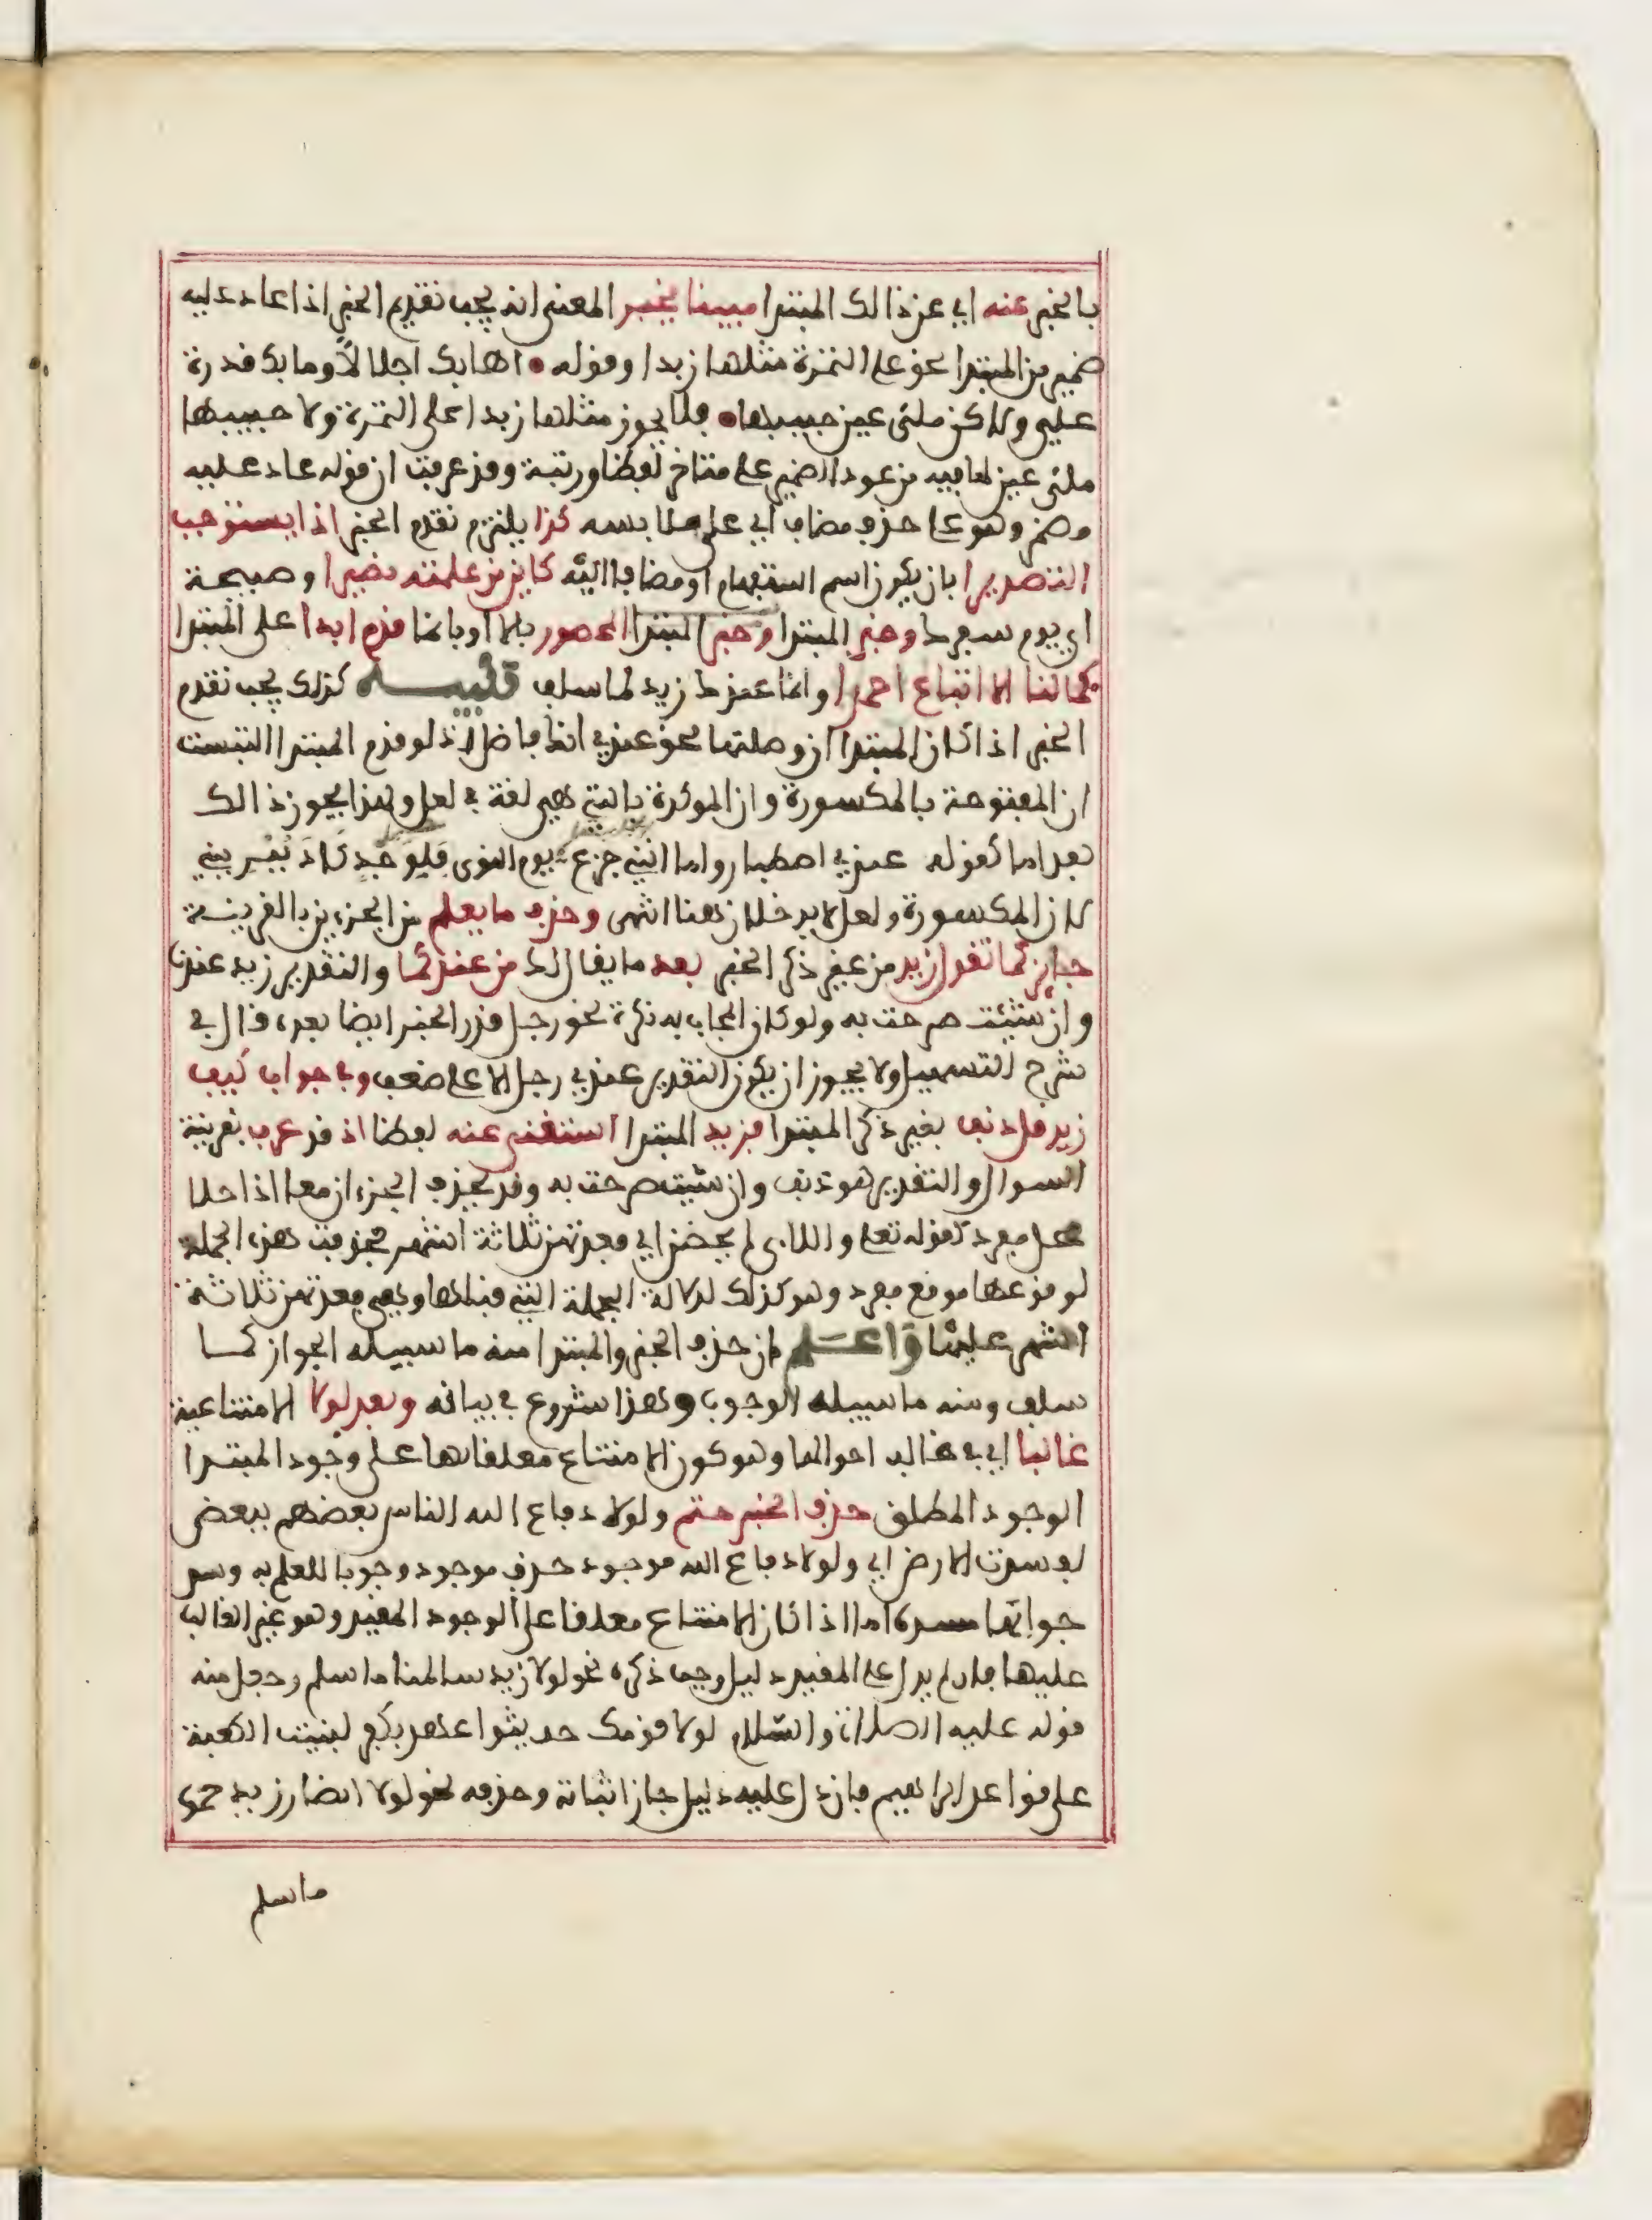 بالخبر عنه اي عن ذالك المبتدا مبينا يخبر المعنى انه يجب تقديم الخبر اذا عاد عليه
ضمير من المبتدا نحو على التمرة مثلها زبدا وقوله اهابك اجلالا وما بك قدرة
علي ولاكن ملئ عين حبيبها فلا يجوز مثلها زبدا على التمرة ولا حبيبها
ملئ عين لما فيه من عود الضمير على متاخر لفظا ورتبة وقد عرفت ان قوله عاد عليه
وهو على حذف مضاف اي على ملابسه كذا يلتزم تقدم الخبر اذا يستوجب
التصديرا بان يكون اسم استفهام او مضافا اليه كاين من علمته نصيرا وصبيحة
اي يوم سفرك وخبر المبتدا وخبر المبتدا المحصور بالا او بانما قدم ابدا على المبتدا
كما لنا الا اتباع احمدا وانما عندك زيد لما سلف تنبيه كذلك يجب تقدم
الخبر اذا كان المبتدا ان وصلتها نحو عندي انك فاضل اذ لو قدم المبتدا التبست
ان المفتوحة بالمكسورة وان الموكدة بالتي هي لغة في لعل ولهذا يجوز ذالك
بعد اما كقوله عندي اصطبار واما انني جزع يوم النوى فلوجد كاد يبريني
لان المكسورة ولعل لا يدخلان هنا انتهى وحذف ما يعلم من الجزءين بالقرينة
جايز كما تقول زيد من غير ذكر الخبر بعد ما يقال لك من عندكما والتقدير زيد عندنا
وان شئت صرحت به ولو كان المجاب به نكرة نحو رجل قدر الخبر ايضا بعده قال في
شرح التسهيل ولا يجوز ان يكون التقدير عندي رجل الا على ضعف وفي جواب كيف
زيد قل دنف بغير ذكر المبتدا فزيد المبتدا استغني عنه لفظا اذ قد عرف بقرينة
السوال والتقدير هو دنف وان شئت صرحت به وقد يحذف الجزءان معا اذا حلا
محل مفرد كقوله تعلى واللاى لم يحضن اي فعدتهن ثلاثة اشهر فحذفت هذه الجملة
لوقوعها موقع مفرد وهو كذلك لدلالة الجملة التي قبلها وهي فعدتهن ثلاثة
اشهر عليها واعلم ان حذف الخبر والمبتدا منه ما سبيله الجواز كما
سلف ومنه ما سبيله الوجوب وهذا شروع في بيانه وبعد لولا الامتناعية
غالبا اي في غالب احوالها وهو كون الامتناع معلقا بها على وجود المبتدا
الوجود المطلق حذف الخبر حتم ولولا دفاع الله الناس بعضهم ببعض
لفسدت الارض اي ولولا دفاع الله موجود حذف موجود وجوبا للعلم به وسد
جوابها مسده اما اذا كان الامتناع معلقا على الوجود المقيد وهو غير الغالب
عليها فان لم يدل على المقيد دليل وجب ذكره نحو لولا زيد سالمنا ما سلم وجعل منه
قوله عليه الصلاة والسلام لولا قومك حديثوا عهد بكفر لبنيت الكعبة
على قواعد ابراهيم فان دل عليه دليل جاز اثباته وحذفه نحو لولا انصار زيد حموه
ما سلم